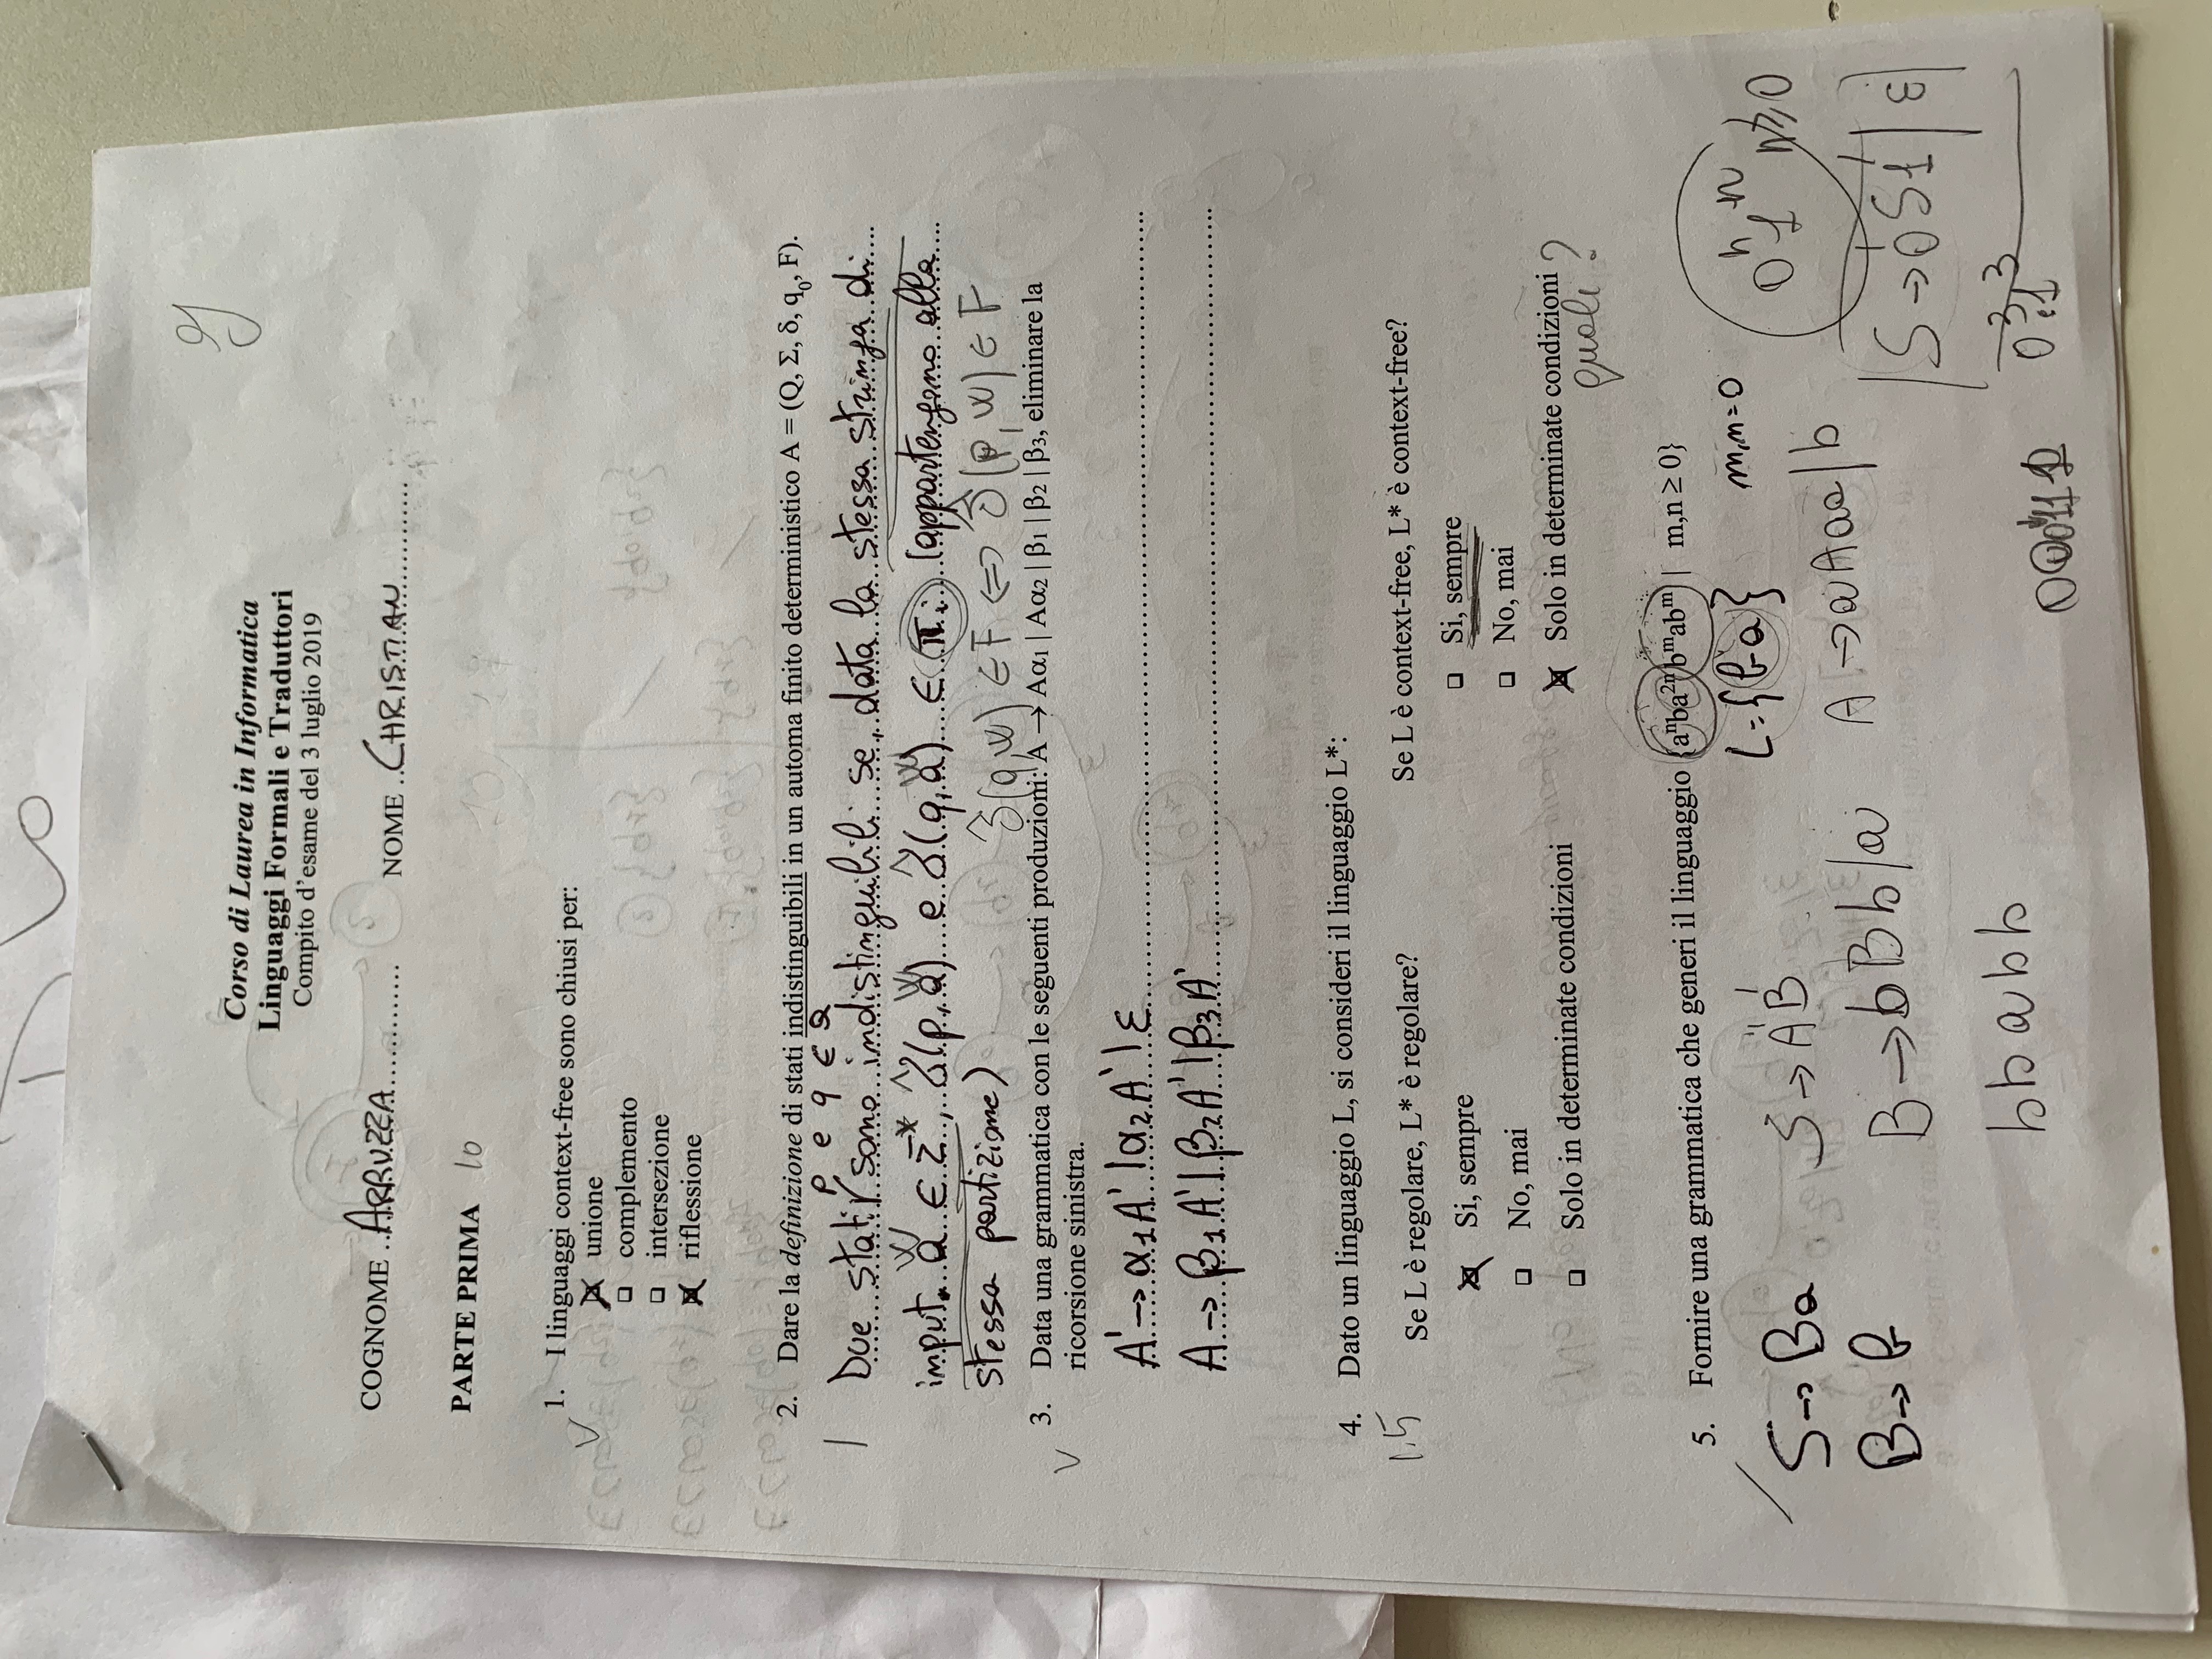 Corso di Laurea in Informatica
Linguaggi Formali e Traduttori
Compito d'esame del 3 luglio 2019
COGNOME ..ARRUZZA.............. NOME ..CHRISTIAN............
PARTE PRIMA 10
1. I linguaggi context-free sono chiusi per:
V
unione
complemento
intersezione
riflessione
2. Dare la definizione di stati indistinguibili in un automa finito deterministico A = (Q, Σ, δ, q₀, F).
p e q ∈ Q
1 Due stati sono indistinguibili se, data la stessa stringa di
input w ∈ Σ*, δ̂(p, w) e δ̂(q, w) ∈ πi (appartengono alla
stessa partizione) δ̂(q,w) ∈ F ⇔ δ̂(p,w) ∈ F
3. Data una grammatica con le seguenti produzioni: A → Aα₁ | Aα₂ | β₁ | β₂ | β₃, eliminare la
V
ricorsione sinistra.
A' → α₁A' | α₂A' | ε
A → β₁A' | β₂A' | β₃A'
4. Dato un linguaggio L, si consideri il linguaggio L*:
1.5
Se L è regolare, L* è regolare? Se L è context-free, L* è context-free?
Si, sempre Si, sempre
No, mai No, mai
Solo in determinate condizioni Solo in determinate condizioni ?
quali
5. Fornire una grammatica che generi il linguaggio {aⁿba²ⁿbᵐabᵐ | m,n ≥ 0}
L={ba} m,n=0
S → Ba S → AB 0ⁿ1ⁿ n≥0
B → b B → bBb/a A → aAaa/b
S → 0S1 | ε
bbabb 0³1³